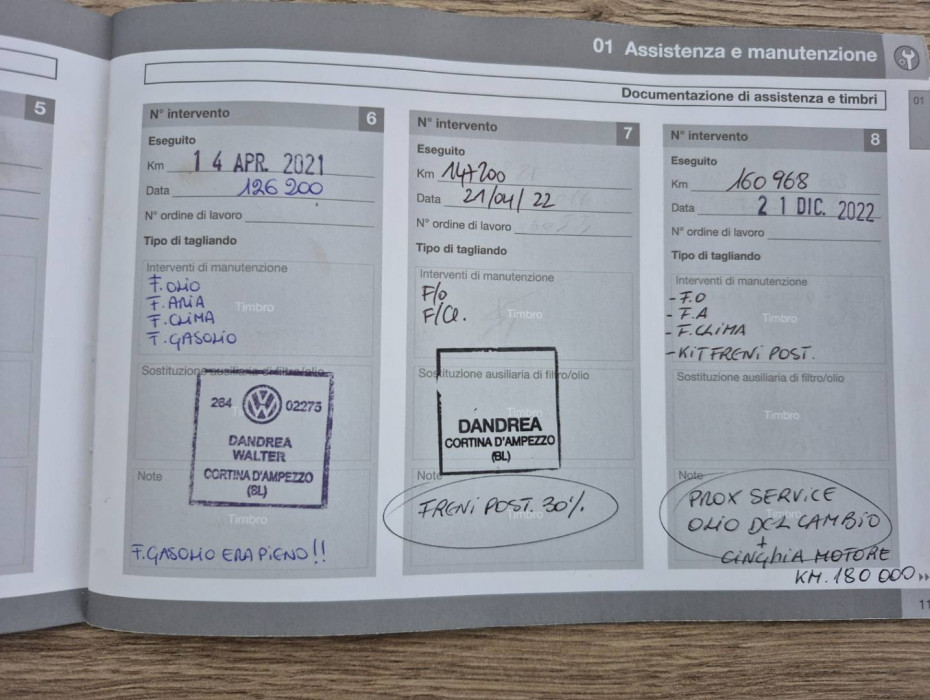 01 Assistenza e manutenzione
01
Documentazione di assistenza e timbri
5
N° intervento 6
Eseguito
Km 14 APR. 2021
Data 126 200
N° ordine di lavoro
Tipo di tagliando
Interventi di manutenzione
F. OLIO
F. ARIA
F. CLIMA
F. GASOLIO
Timbro
Sostituzione ausiliaria di filtro/olio
264 02275
DANDREA
WALTER
CORTINA D'AMPEZZO
(BL)
Note
Timbro
F. GASOLIO ERA PIENO!!
N° intervento 7
Eseguito
Km 147200
Data 21/04/22
N° ordine di lavoro
Tipo di tagliando
Interventi di manutenzione
F/O
F/Cl.
Timbro
Sostituzione ausiliaria di filtro/olio
Timbro
DANDREA
CORTINA D'AMPEZZO
(BL)
Note
FRENI POST. 30%.
Timbro
N° intervento 8
Eseguito
Km 160 968
Data 21 DIC. 2022
N° ordine di lavoro
Tipo di tagliando
Interventi di manutenzione
- F.O
- F.A
- F. CLIMA
- KIT FRENI POST.
Timbro
Sostituzione ausiliaria di filtro/olio
Timbro
Note
PROX SERVICE
OLIO DEL CAMBIO
+
CINGHIA MOTORE
KM. 180 000
Timbro
11